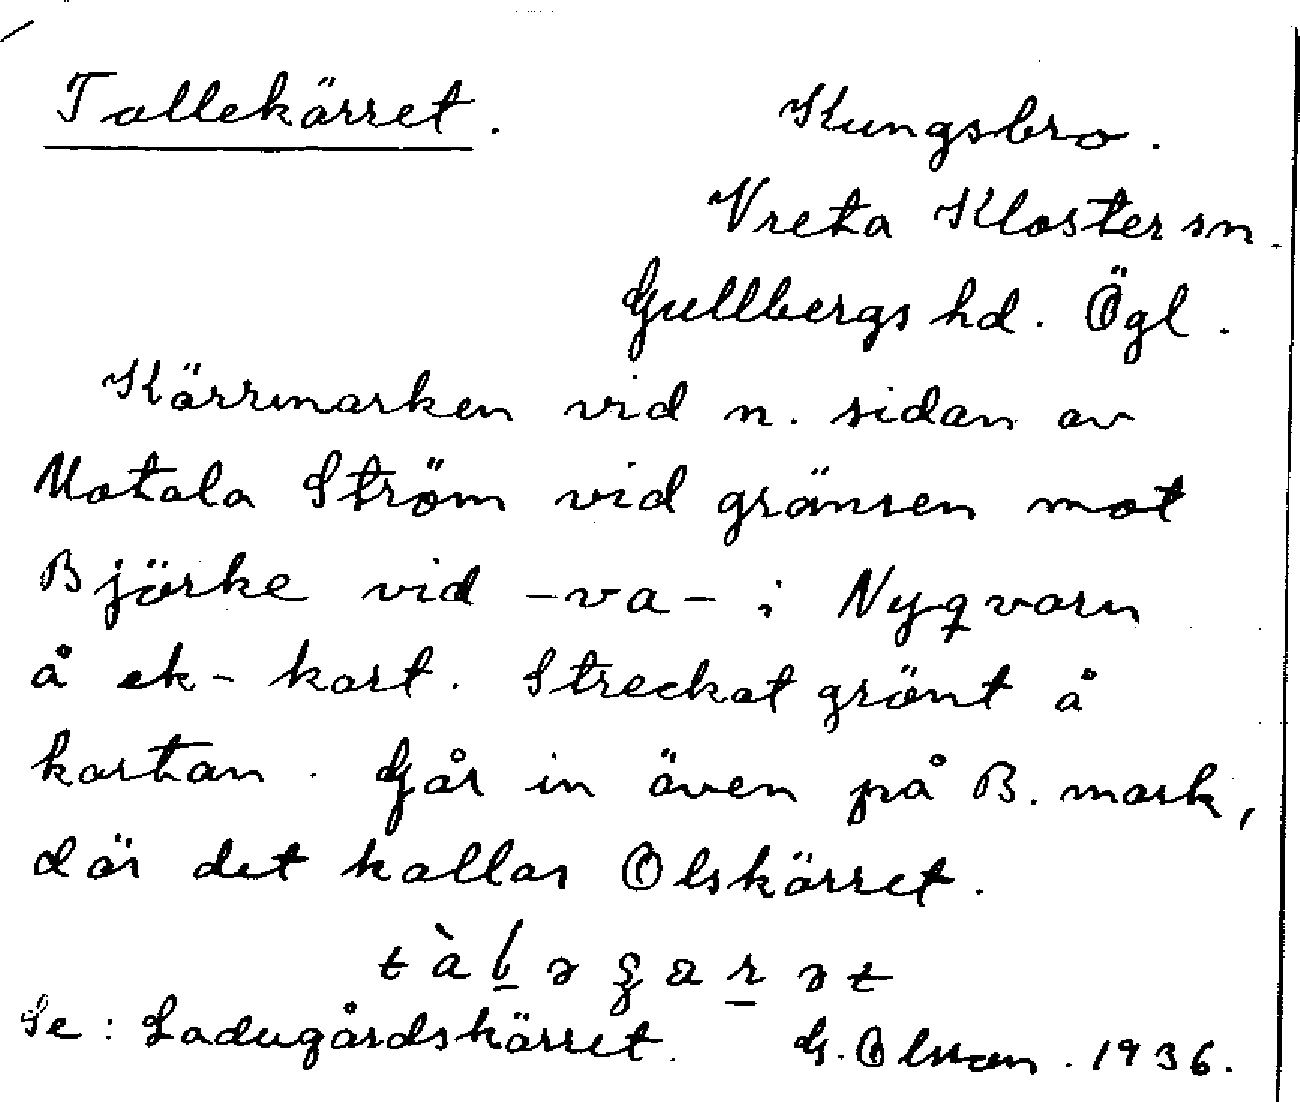 Tallekärret.
Kungsbro.
Vreta Kloster sn.
Gullbergs hd. Ögl.
Kärrmarken vid n. sidan av
Motala Ström vid gränsen mot
Björke vid -va- i Nyqvarn
å ek-kart. Streckat grönt å
kartan. Går in även på B. mark,
där det kallas Olskärret.
Se: Ladugårdskärret. G. Olsson. 1936.